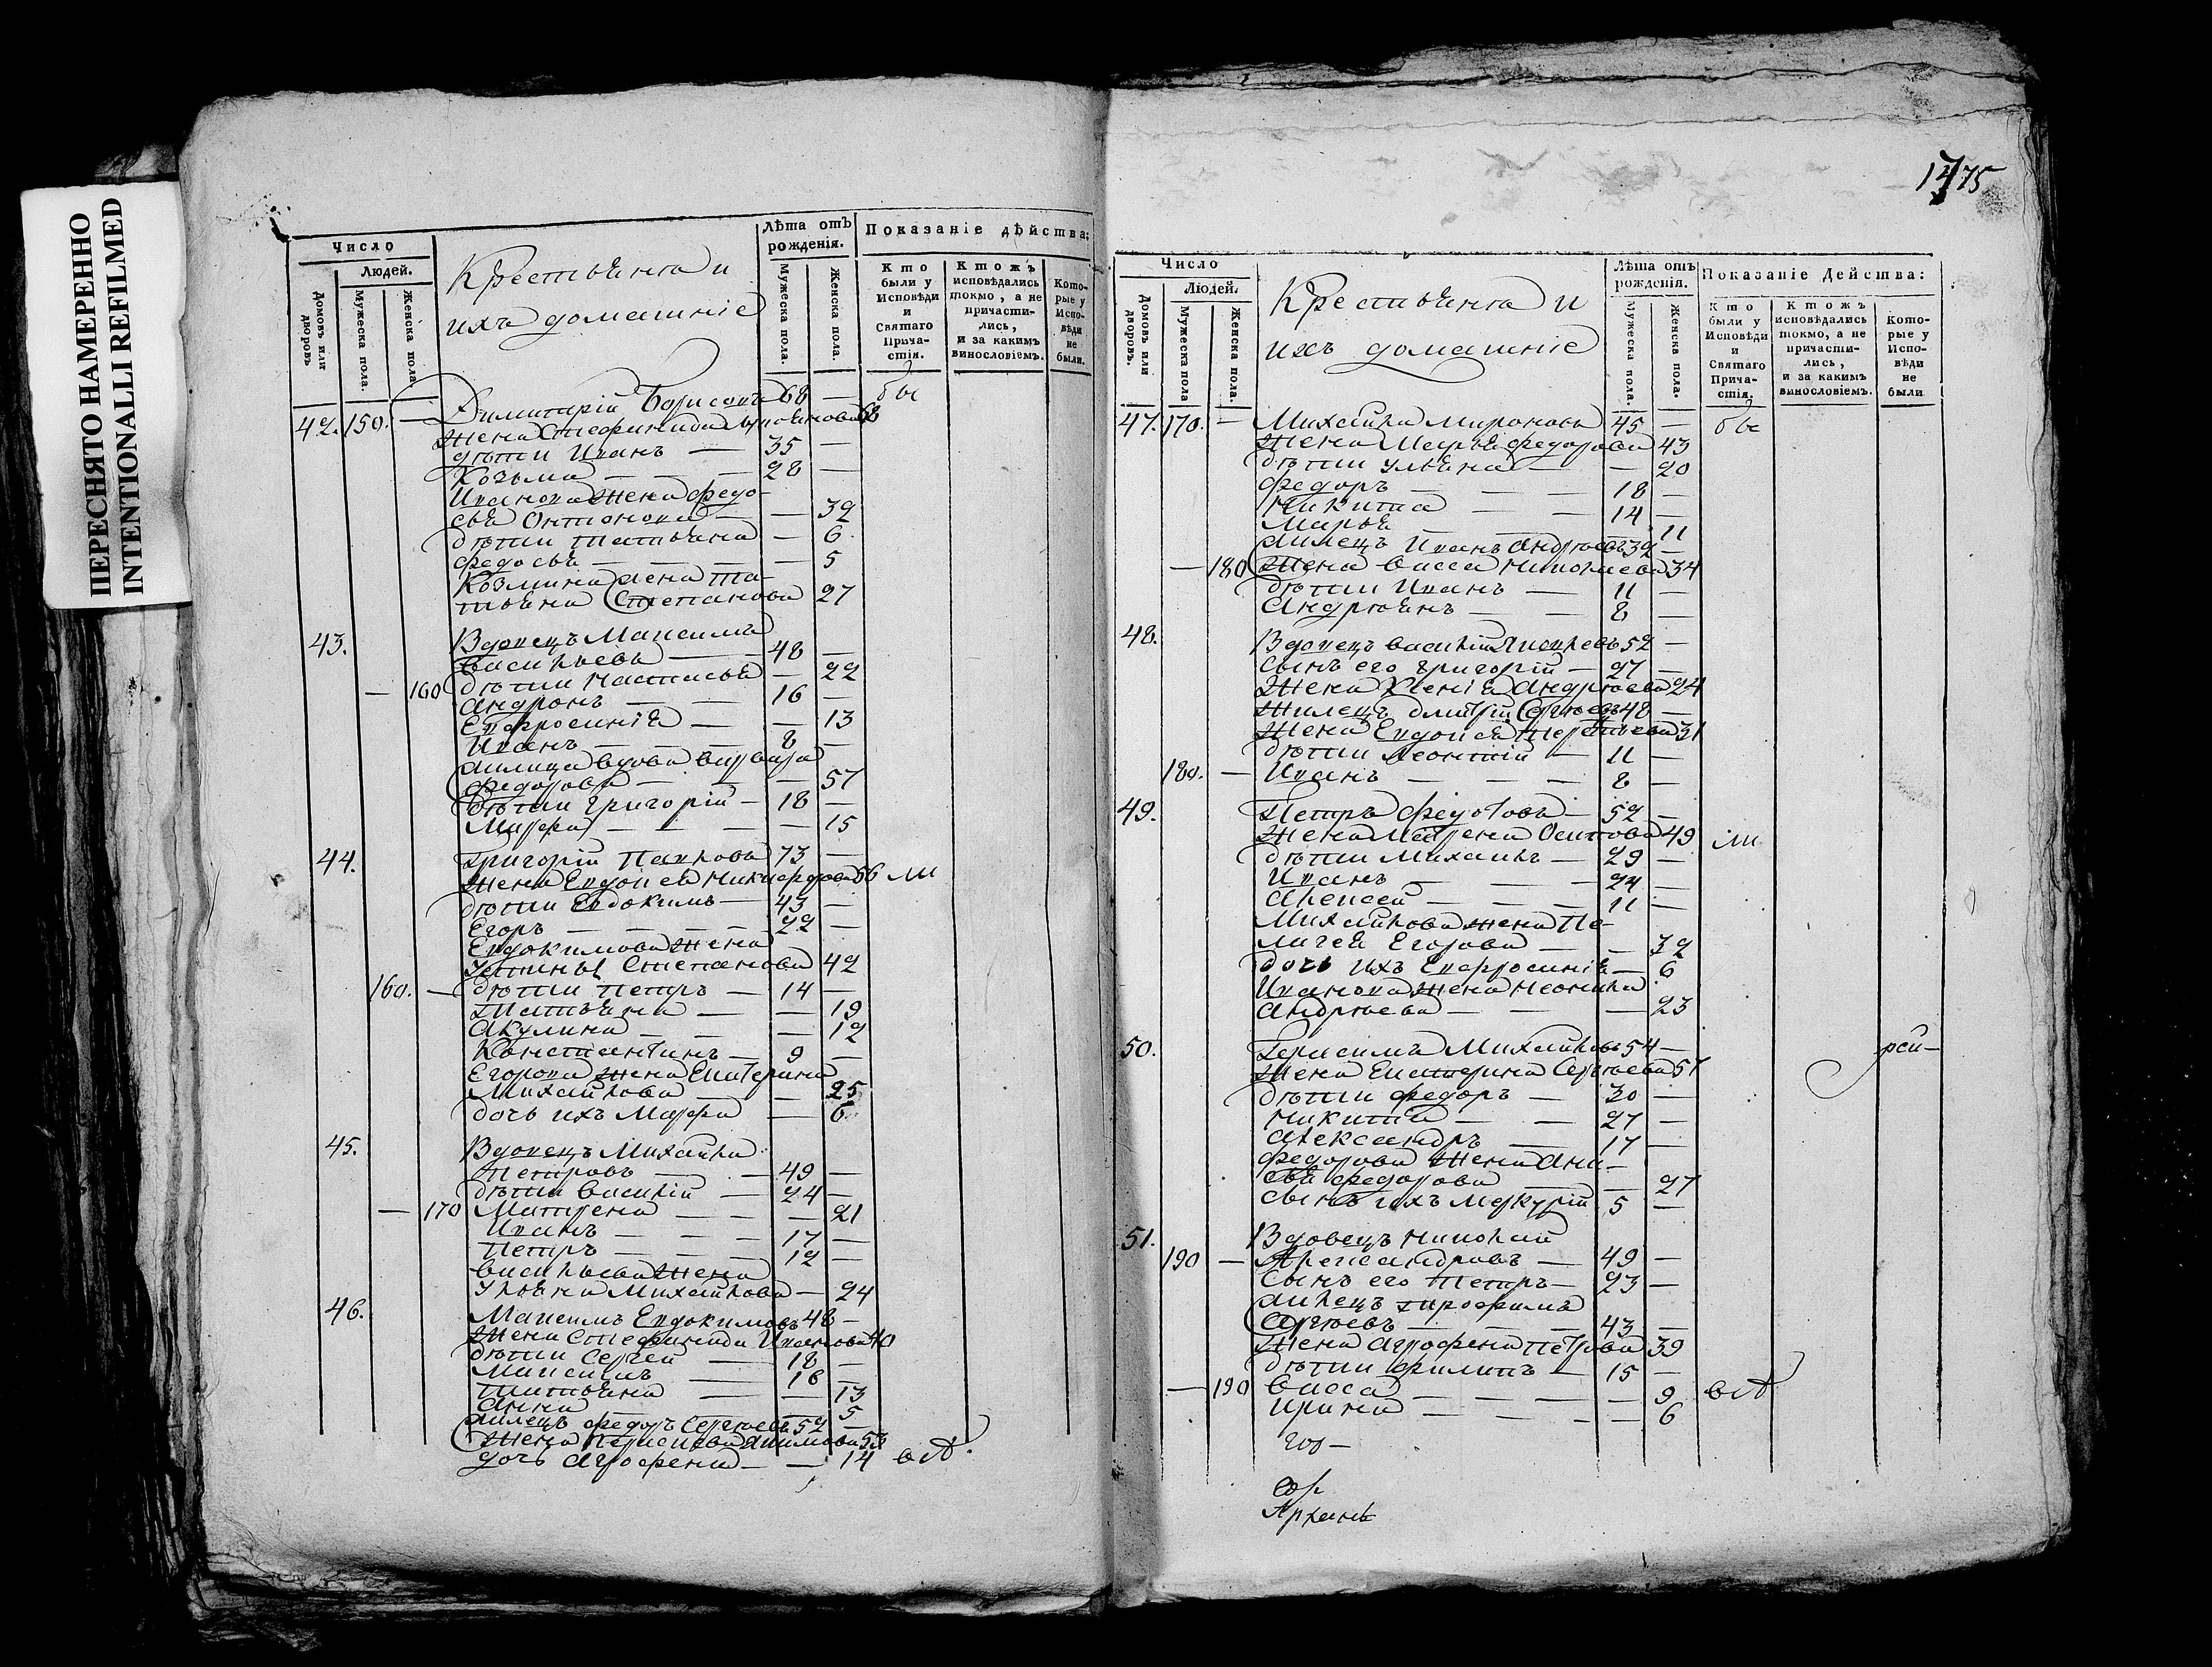 ПЕРЕСНЯТО НАМЕРЕННО
INTENTIONALLI REFILMED
Число
Людей.
Домовъ или дворовъ
Мужеска пола.
Женска пола.
Крестьяня и
ихъ домашніе
Лѣта отъ рожденія.
Мужеска пола.
Женска пола.
Показаніе дѣйства:
Кто были у Исповѣди и Святаго Причастія.
Ктожъ исповѣдались токмо, а не причастились, и за какимъ винословіемъ.
Которые у Исповѣди не были.
42. 150. — Димитрій Борисовъ 68 — бы
Жена Стефанида 68
дѣти Иванъ — 35 —
Козьма — — 28 —
Иванова жена Федо-
сья Онтонова — — 32
дѣти Татьяна — 6
Федосья — — — 5
Козмина жена Та-
тьяна Степанова 27
43. Вдовецъ Максимъ
Васильевъ — 48 —
— 160 дѣти Настасья — 22
Андронъ — — 16 —
Евфросинія — — 13
Иванъ — — 8 —
жилица вдова Варвара
Федорова — — 57
дѣти Григорій — 18 —
Марфа — — — 15
44. Григорій Павловъ 73 —
Жена Евдокея 56 ли
дѣти Евдокимъ — 43 —
Егоръ — — — 22 —
Евдокимова жена
Устинья Степанова 42
160. — дѣти Петръ — 14 —
Татьяна — — 19
Акулина — — — 12
Констянтинъ — 9 —
Егорова жена Екатерина
Михайлова — — 25
дочь ихъ Марфа — 6
45. Вдовецъ Михайла
Петровъ — — 49 —
дѣти Василій — 24 —
— 170 Матрена — — — 21
Иванъ — — — 17 —
Петръ — — — 12 —
Васильева жена
Ульяна Михайлова — 24
46. Максимъ Евдокимовъ 48 —
Жена Стефанида Иванова 40
дѣти Сергей — 18 —
Максимъ — 16 —
Татьяна — — 13
Анна — — 5
жилецъ Федоръ Сергѣевъ 52 —
Жена Акимова 53
дочь Агрофена — — 14 вѣ
1475
Число
Людей.
Домовъ или дворовъ.
Мужеска пола
Женска пола.
Крестьяня и
ихъ домашніе
Лѣта отъ рожденія.
Мужеска пола.
Женска пола.
Показаніе Действа:
Кто были у Исповѣди и Святаго Причастія.
Ктожъ исповѣдались токмо, а не причастились, и за какимъ винословіемъ.
Которые у Исповѣди не были
47. 170. — Михайла Мироновъ 45 — бы
Жена Марья Федорова 43
дѣти Ульяна — — 20
Федоръ — — — 18 —
Никита — — 14 —
Марья — — — 11
жилецъ Иванъ Андрѣевъ 32 —
— 180 Жена Васса Николаева 34
дѣти Иванъ — 11 —
Андрѣянъ — — 8 —
48. Вдовецъ Василій Яковлевъ 52 —
сынъ его Григорій — 27 —
Жена Ксенія Андрѣева 24
Жилецъ Дмитрій Сергѣевъ 48 —
Жена Евдокея 31
дѣти Леонтій — 11 —
180. — Иванъ — — — 8 —
49. Петръ Федотовъ — 52 —
Жена Матрена Осипова 49 ли
дѣти Михайла — 29 —
Иванъ — — — 24 —
Алексей — — — 11 —
Михайлова жена Пе-
лагея Егорова — — 32
дочь ихъ Евфросинія — 6
Иванова жена Неонила
Андрѣева — — — 23
50. Герасимъ Михайловъ 54 — рей—
Жена Екатерина Сергѣева 51
дѣти Федоръ — 30 —
Никита — — 27 —
Александръ — 17 —
Федорова жена Ани-
сья Федорова — — 27
сынъ ихъ Меркурій 5 —
51. Вдовецъ Николай
190 — Александровъ — 49 —
Сынъ его Петръ — 23 —
жилецъ Трофимъ
Сергѣевъ — — 43 —
Жена Агрофена Петрова 39
дѣти Филипъ — 15 —
— 190 Васса — — — 9 вѣ
Ирина — — — — 6